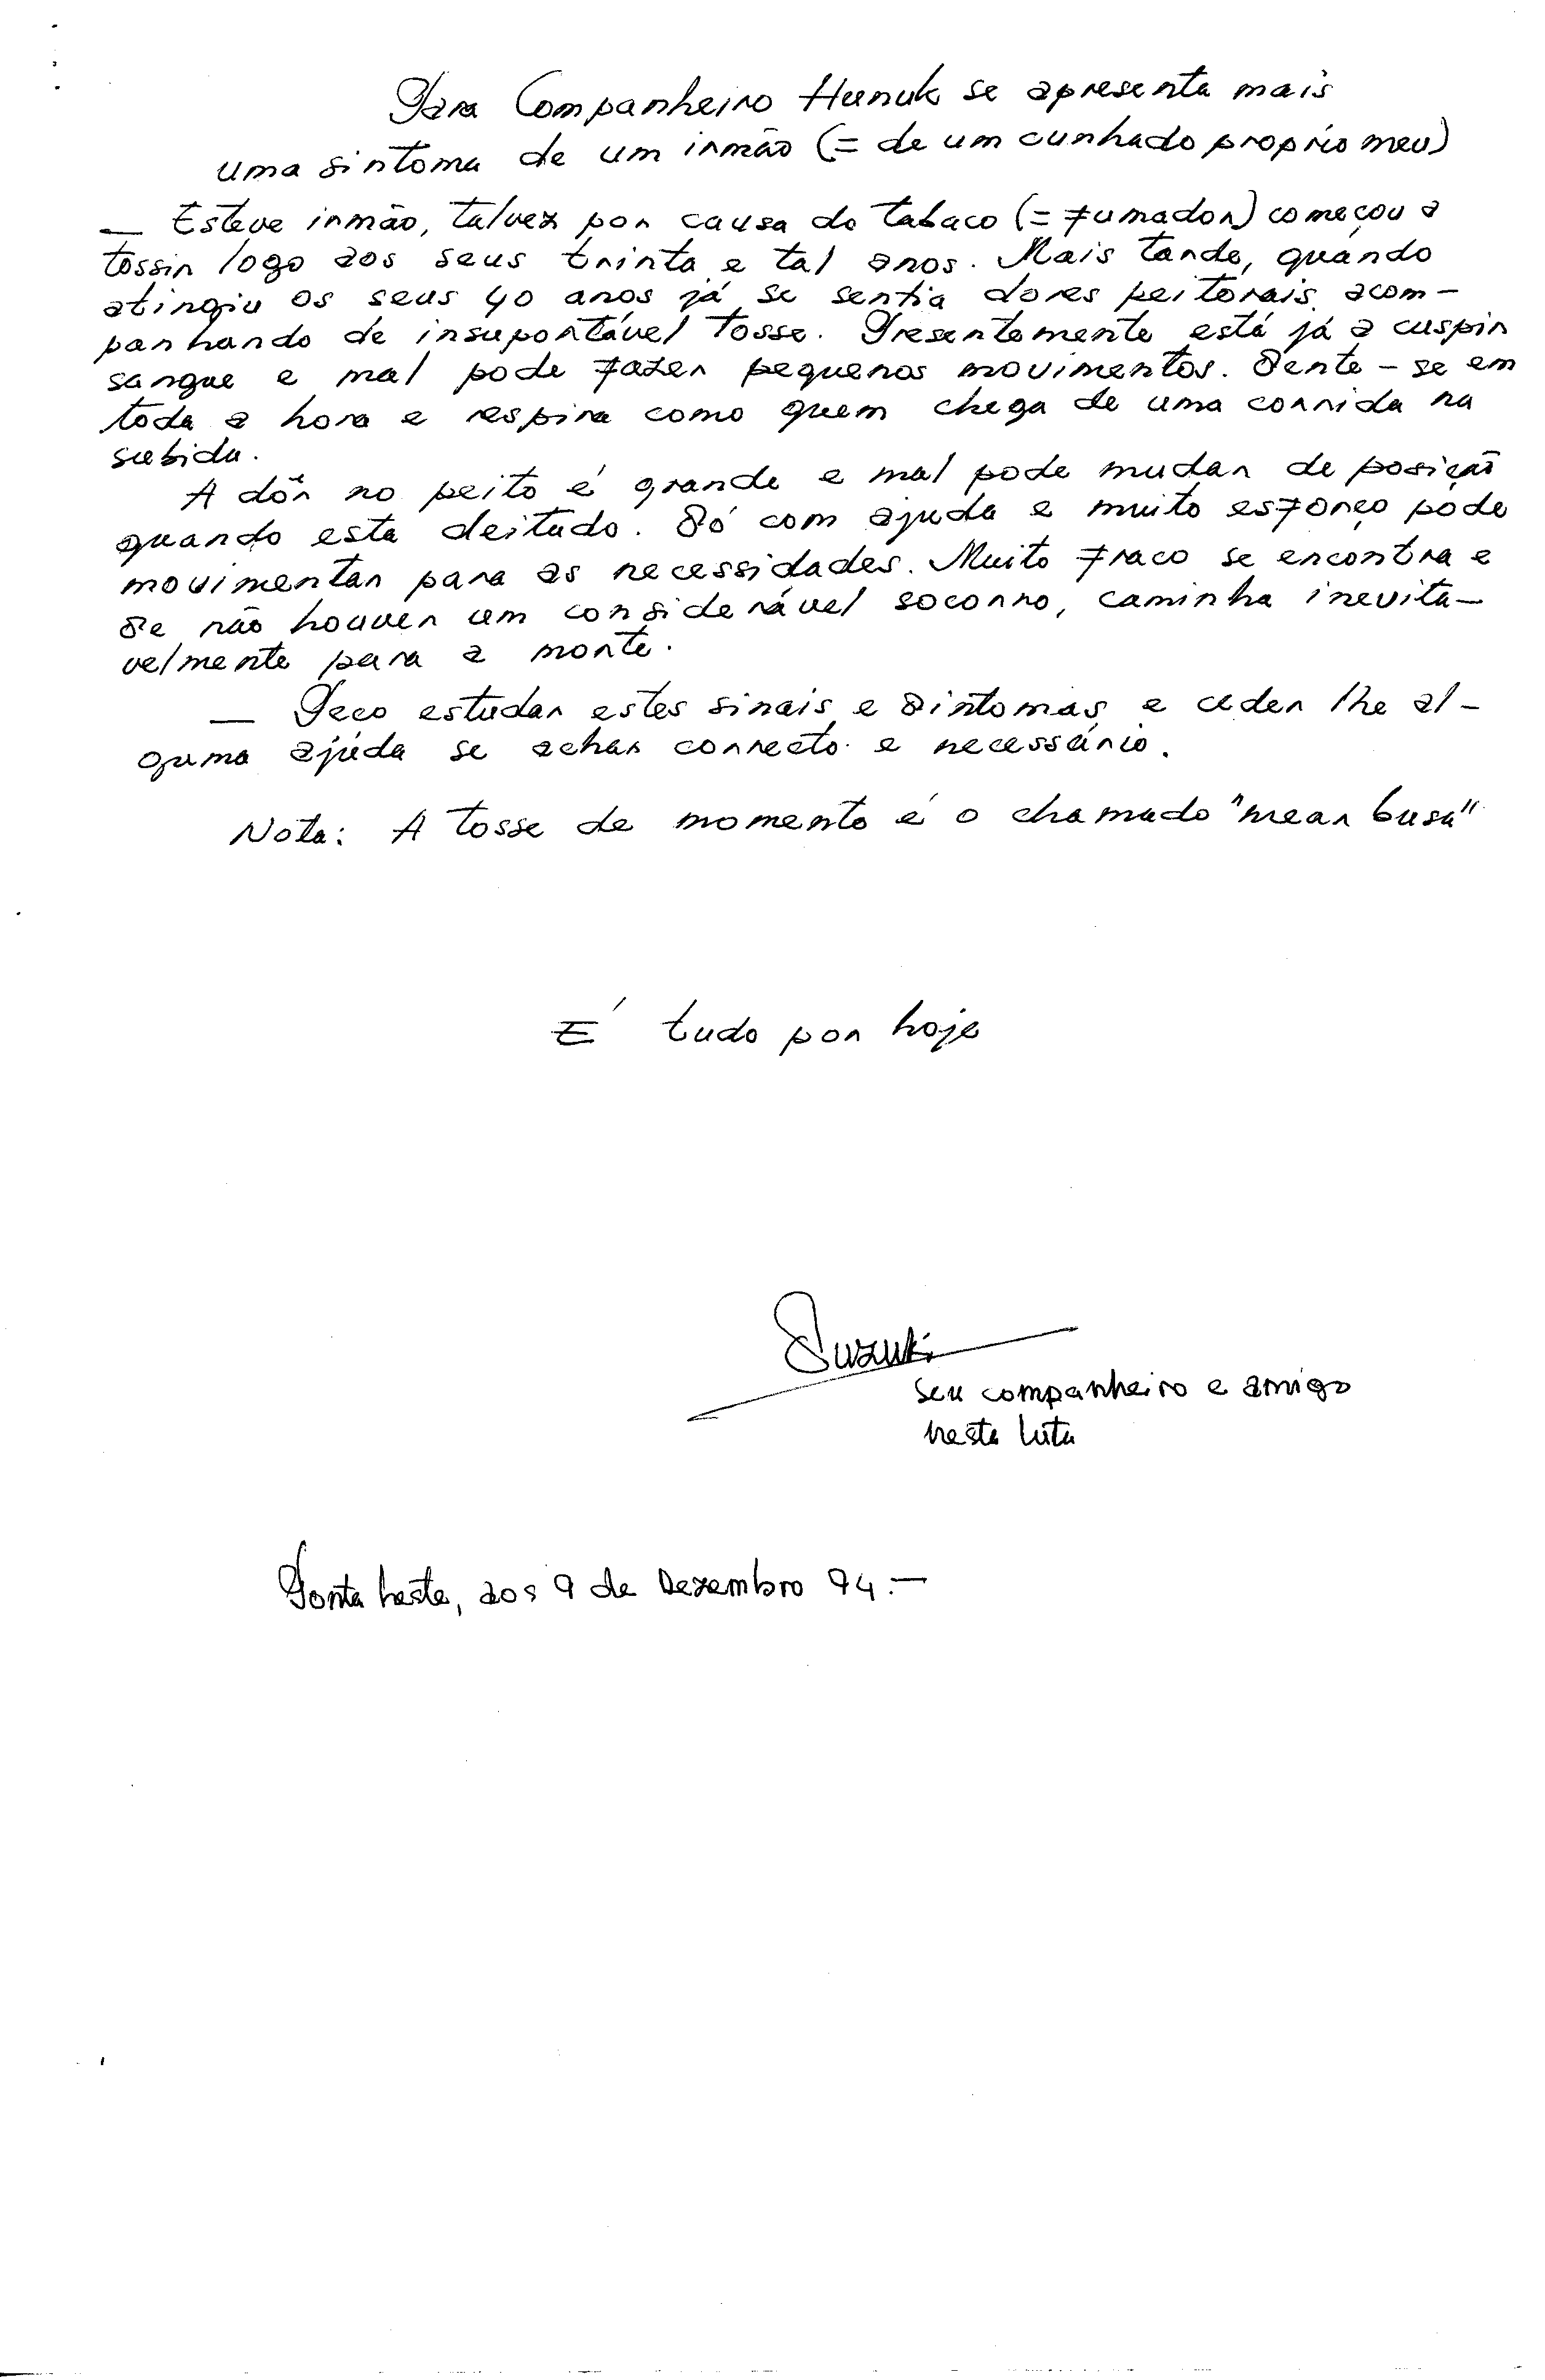 Para Companheiro Hunuk se apresenta mais
uma sintoma de um irmão (= de um cunhado proprio meu)
— Esteve irmão, talvez por causa do tabaco (= fumador) começou a
tossir logo aos seus trinta e tal anos. Mais tarde, quando
atingiu os seus 40 anos já se sentia dores peitorais acom-
panhando de insuportável tosse. Presentemente está já a cuspir
sangue e mal pode fazer pequenos movimentos. Sente-se em
toda a hora e respira como quem chega de uma corrida na
subida.
A dôr no peito é grande e mal pode mudar de posição
quando esta deitado. Só com ajuda e muito esforço pode
movimentar para as necessidades. Muito fraco se encontra e
se não houver um considerável socorro, caminha inevita-
velmente para a morte.
— Peço estudar estes sinais e sintomas e ceder lhe al-
guma ajuda se achar correcto e necessário.
Nota: A tosse de momento é o chamado "mear busa"
É tudo por hoje
Suzuki
seu companheiro e amigo
nesta luta
Ponta leste, aos 9 de Dezembro 94.-